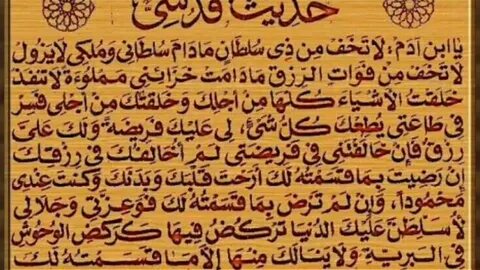 حديث قدسي
يا ابن آدم: لا تخف من ذي سلطان ما دام سلطاني وملكي لا يزول
لا تخف من فوات الرزق ما دامت خزائني مملوءة لا تنفد
خلقت الأشياء كلها من أجلك وخلقتك من أجلي فسر
في طاعتي يطعك كل شئ، لي عليك فريضة ولك علي
رزق فإن خالفتني في فريضتي لم أخالفك في رزقك
إن رضيت بما قسمته لك أرحت قلبك وبدنك وكنت عندي
محمودا، وإن لم ترض بما قسمته لك فوعزتي وجلالي
لأسلطن عليك الدنيا تركض فيها كركض الوحوش
في البرية ولا ينالك منها إلا ما قسمته لك